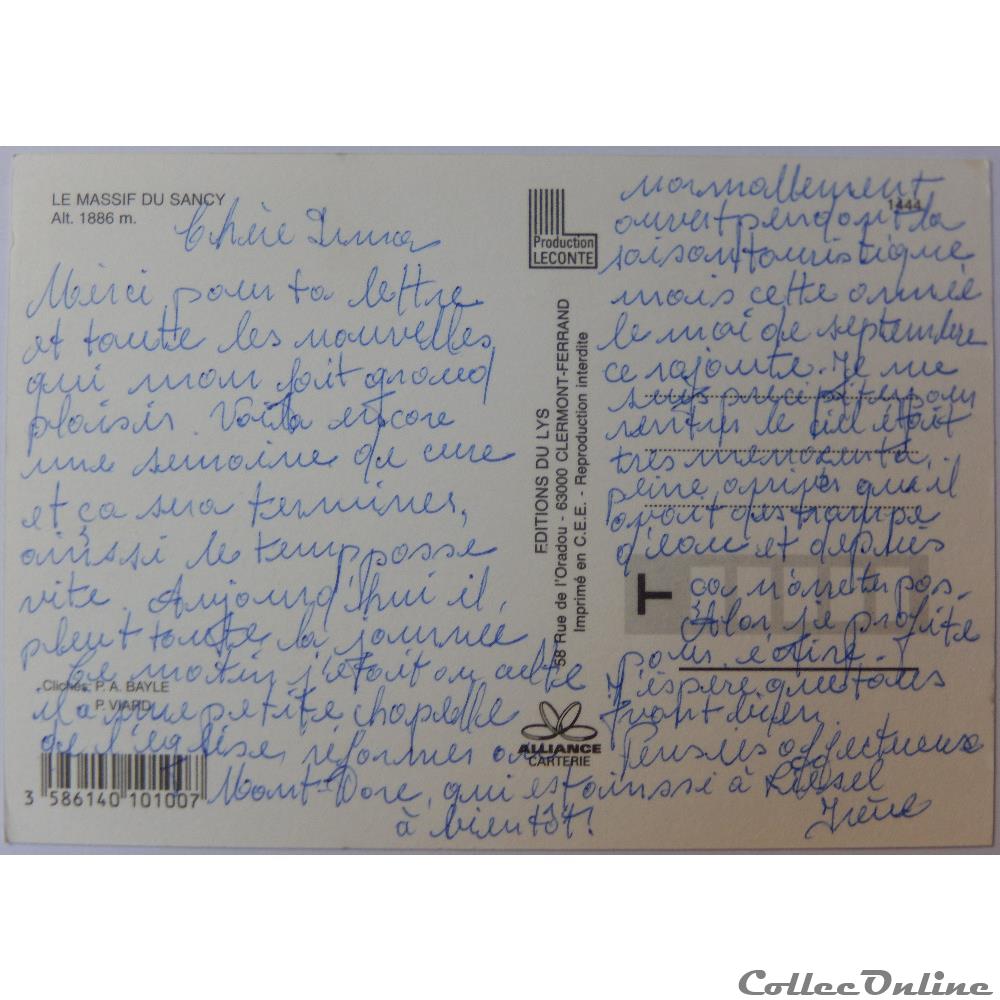 LE MASSIF DU SANCY
Alt. 1886 m.
Chère
Merci pour ta lettre
et toute les nouvelles
qui mon fait grand
plaisir. Voila encore
une semaine de cure
et ça sera terminer,
ainssi le temp passe
vite. Aujourd'hui il
pleut toute la journée
Ce matin j'était au culte
il y a une petite chapelle
de l'église réformer au
Mont-Dore, qui est ainssi à
à bientôt!
Clichés: P. A. BAYLE
P. VIARD
3 586140 101007
Production
LECONTE
EDITIONS DU LYS
58 Rue de l'Oradou - 63000 CLERMONT-FERRAND
Imprimé en C.E.E. - Reproduction interdite
ALLIANCE
CARTERIE
1444
normallement
ouvert pendant la
saison touristique
mais cette année
le moi de septembre
ce rajoute. Je me
suis precipiter pour
rentrer le ciel était
très menacent à
peine arriver qu'il
avait des trompe
d'eau et depuis
T
ça n'arrete pas.
Alor je profite
pour écrire.
J'espère que tous
vont bien.
Pensées affectueux
Irène
CollecOnline